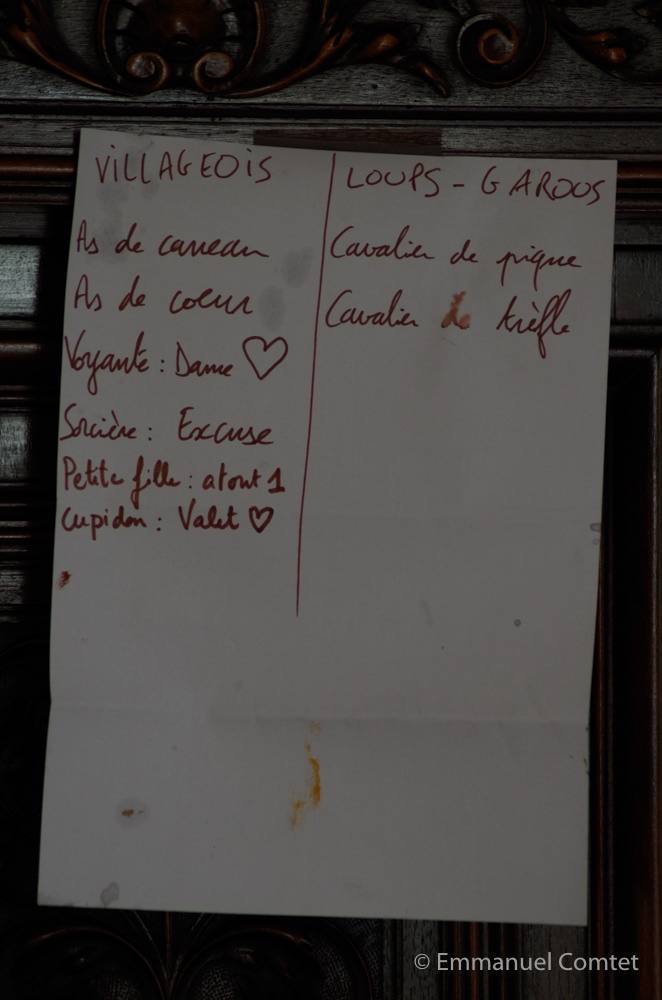 VILLAGEOIS
As de carreau
As de coeur
Voyante : Dame ♡
Sorcière : Excuse
Petite fille : atout 1
Cupidon : Valet ♡
LOUPS - GAROUS
Cavalier de pique
Cavalier de trèfle
© Emmanuel Comtet